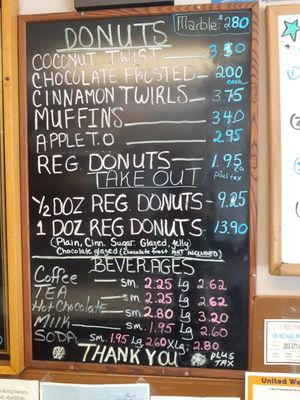 Marble: 2.80
DONUTS
COCONUT TWIST 3.50
CHOCOLATE FROSTED 2.00 each
CINNAMON TWIRLS 3.75
MUFFINS 3.40
APPLE T.O 2.95
REG. DONUTS 1.95 ea
Plus tax
TAKE OUT
1/2 DOZ REG. DONUTS - 9.25
1 DOZ REG DONUTS - 13.90
(Plain, Cinn. Sugar. Glazed, Jelly)
Chocolate glazed (chocolate frost NOT INCLUDED)
BEVERAGES
Coffee sm. 2.25 Lg 2.62
TEA sm. 2.25 Lg 2.62
Hot Chocolate sm. 2.80 Lg 3.20
Milk sm. 1.95 Lg 2.60
SODA sm. 1.95 Lg. 2.60 XLg. 2.80
THANK YOU PLUS TAX
United Wa